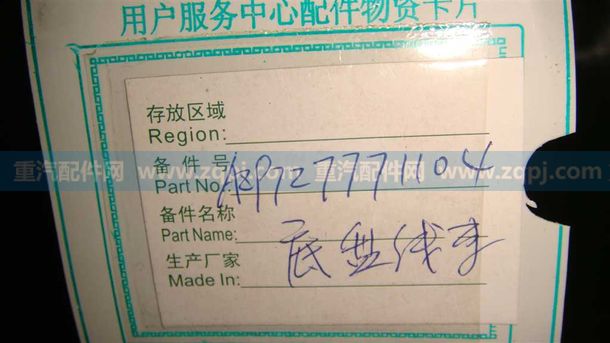 用户服务中心配件物资卡片
存放区域
Region:
备件号
Part No: AZ9727771104
备件名称
Part Name: 底盘线束
生产厂家
Made In:
重汽配件网 www.zqpj.com 重汽配件网 www.zqpj.com